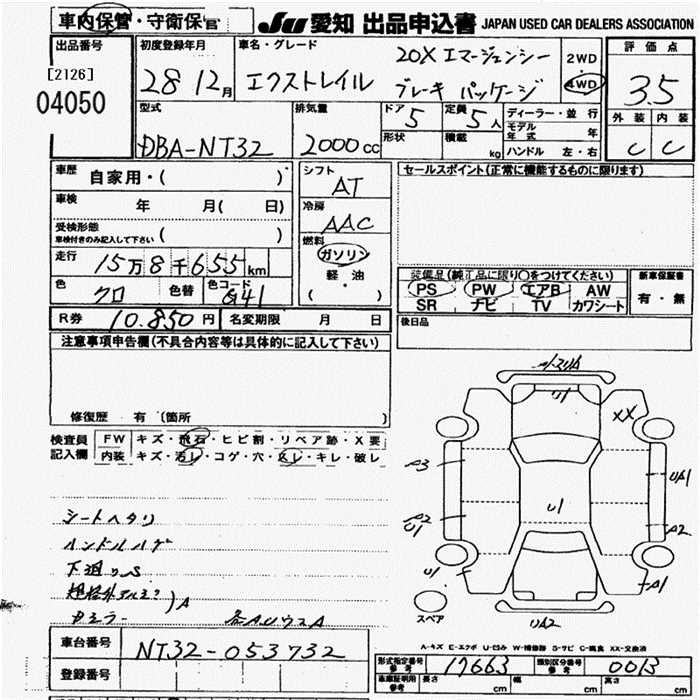 車内保管・守衛保管
JU 愛知 出品申込書 JAPAN USED CAR DEALERS ASSOCIATION
出品番号
[2126]
04050
初度登録年月
28 12月
車名・グレード
エクストレイル
20X エマージェンシー
ブレーキ パッケージ
2WD
4WD
評価点
3.5
外装 内装
C C
型式
DBA-NT32
排気量
2000 cc
ドア 5
形状
定員 5 人
積載 kg
ディーラー・並行
モデル年式 年
ハンドル 左・右
車歴 自家用・( )
車検 年 月( 日)
受検形態
車検付きのみ記入して下さい ( )
走行 15万8千655km
色 クロ 色替 色コード G41
シフト
AT
冷房
AAC
燃料
ガソリン
軽・油
( )
セールスポイント(正常に機能するものに限ります)
装備品(純正品に限り○をつけてください)
PS PW エアB AW
SR ナビ TV カワシート
新車保証書
有・無
後日品
R券 10.850円 名変期限 月 日
注意事項申告欄(不具合内容等は具体的に記入して下さい)
修復歴 有(箇所 )
検査員記入欄
FW キズ・飛石・ヒビ割・リペア跡・X要
内装 キズ・汚レ・コゲ・穴・スレ・キレ・破レ
シートヘタリ
ハンドルハゲ
下廻りS
規格外アルミ
A
U1
XX
A3
UA1
U1
A2
U1
A2
U1
A1
スペア
UA2
A-キズ E-エクボ U-凹み W-補修跡 S-サビ C-腐食 XX-交換済
車台番号 NT32-053732
登録番号
形式指定番号参考 17663 類別区分番号参考 0013
車庫証明用参考 長さ cm 幅 cm 高さ cm